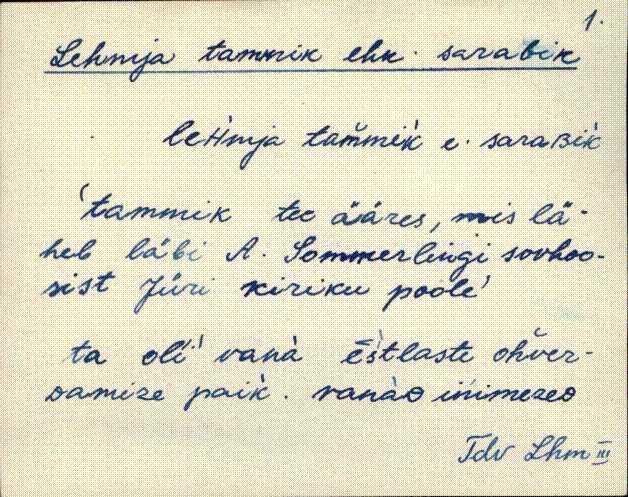 1.
Lehmja tammik ehk. sarabik
leHmja tam̆mìk e. saraʙìk
'tammik tee ääres, mis lä-
heb läbi A. Sommerlingi sovhoo-
sist Jüri kiriku poole'
ta olì' vanà ēs̀tlaste ohver-
damize paìk. vanàD inimezeD
Tdv Lhm III